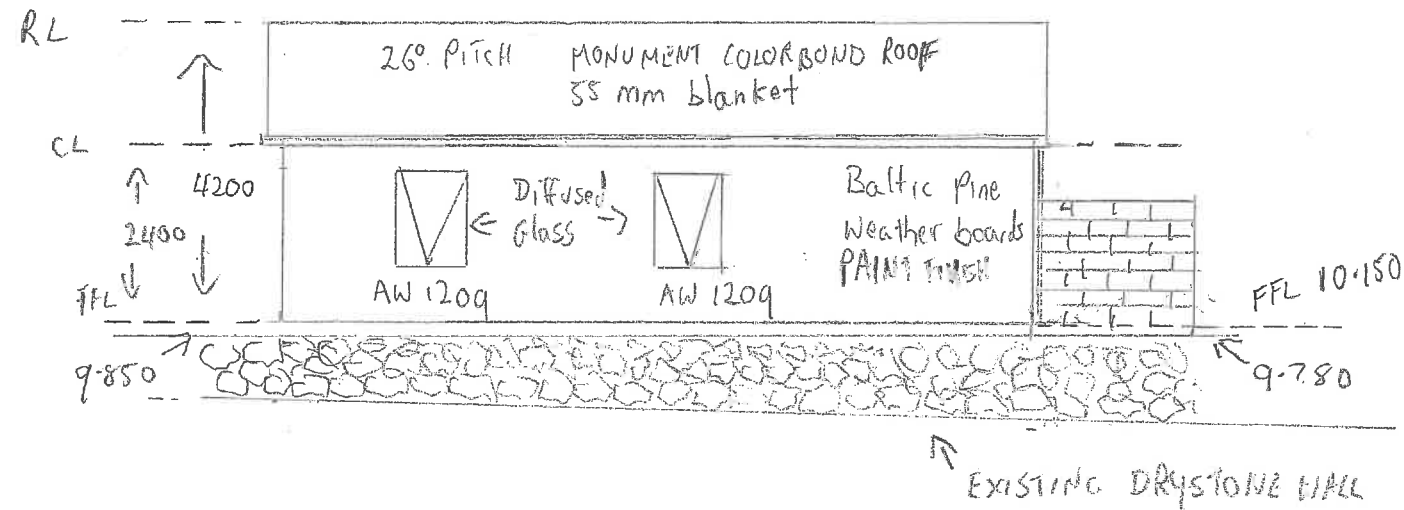 RL
26°. PITCH MONUMENT COLORBOND ROOF
55 mm blanket
CL
4200
2400
FFL
Diffused
Glass
AW 1209
AW 1209
Baltic Pine
Weather boards
PAINT FINISH
FFL 10.150
9.850
9.780
EXISTING DRYSTONE WALL